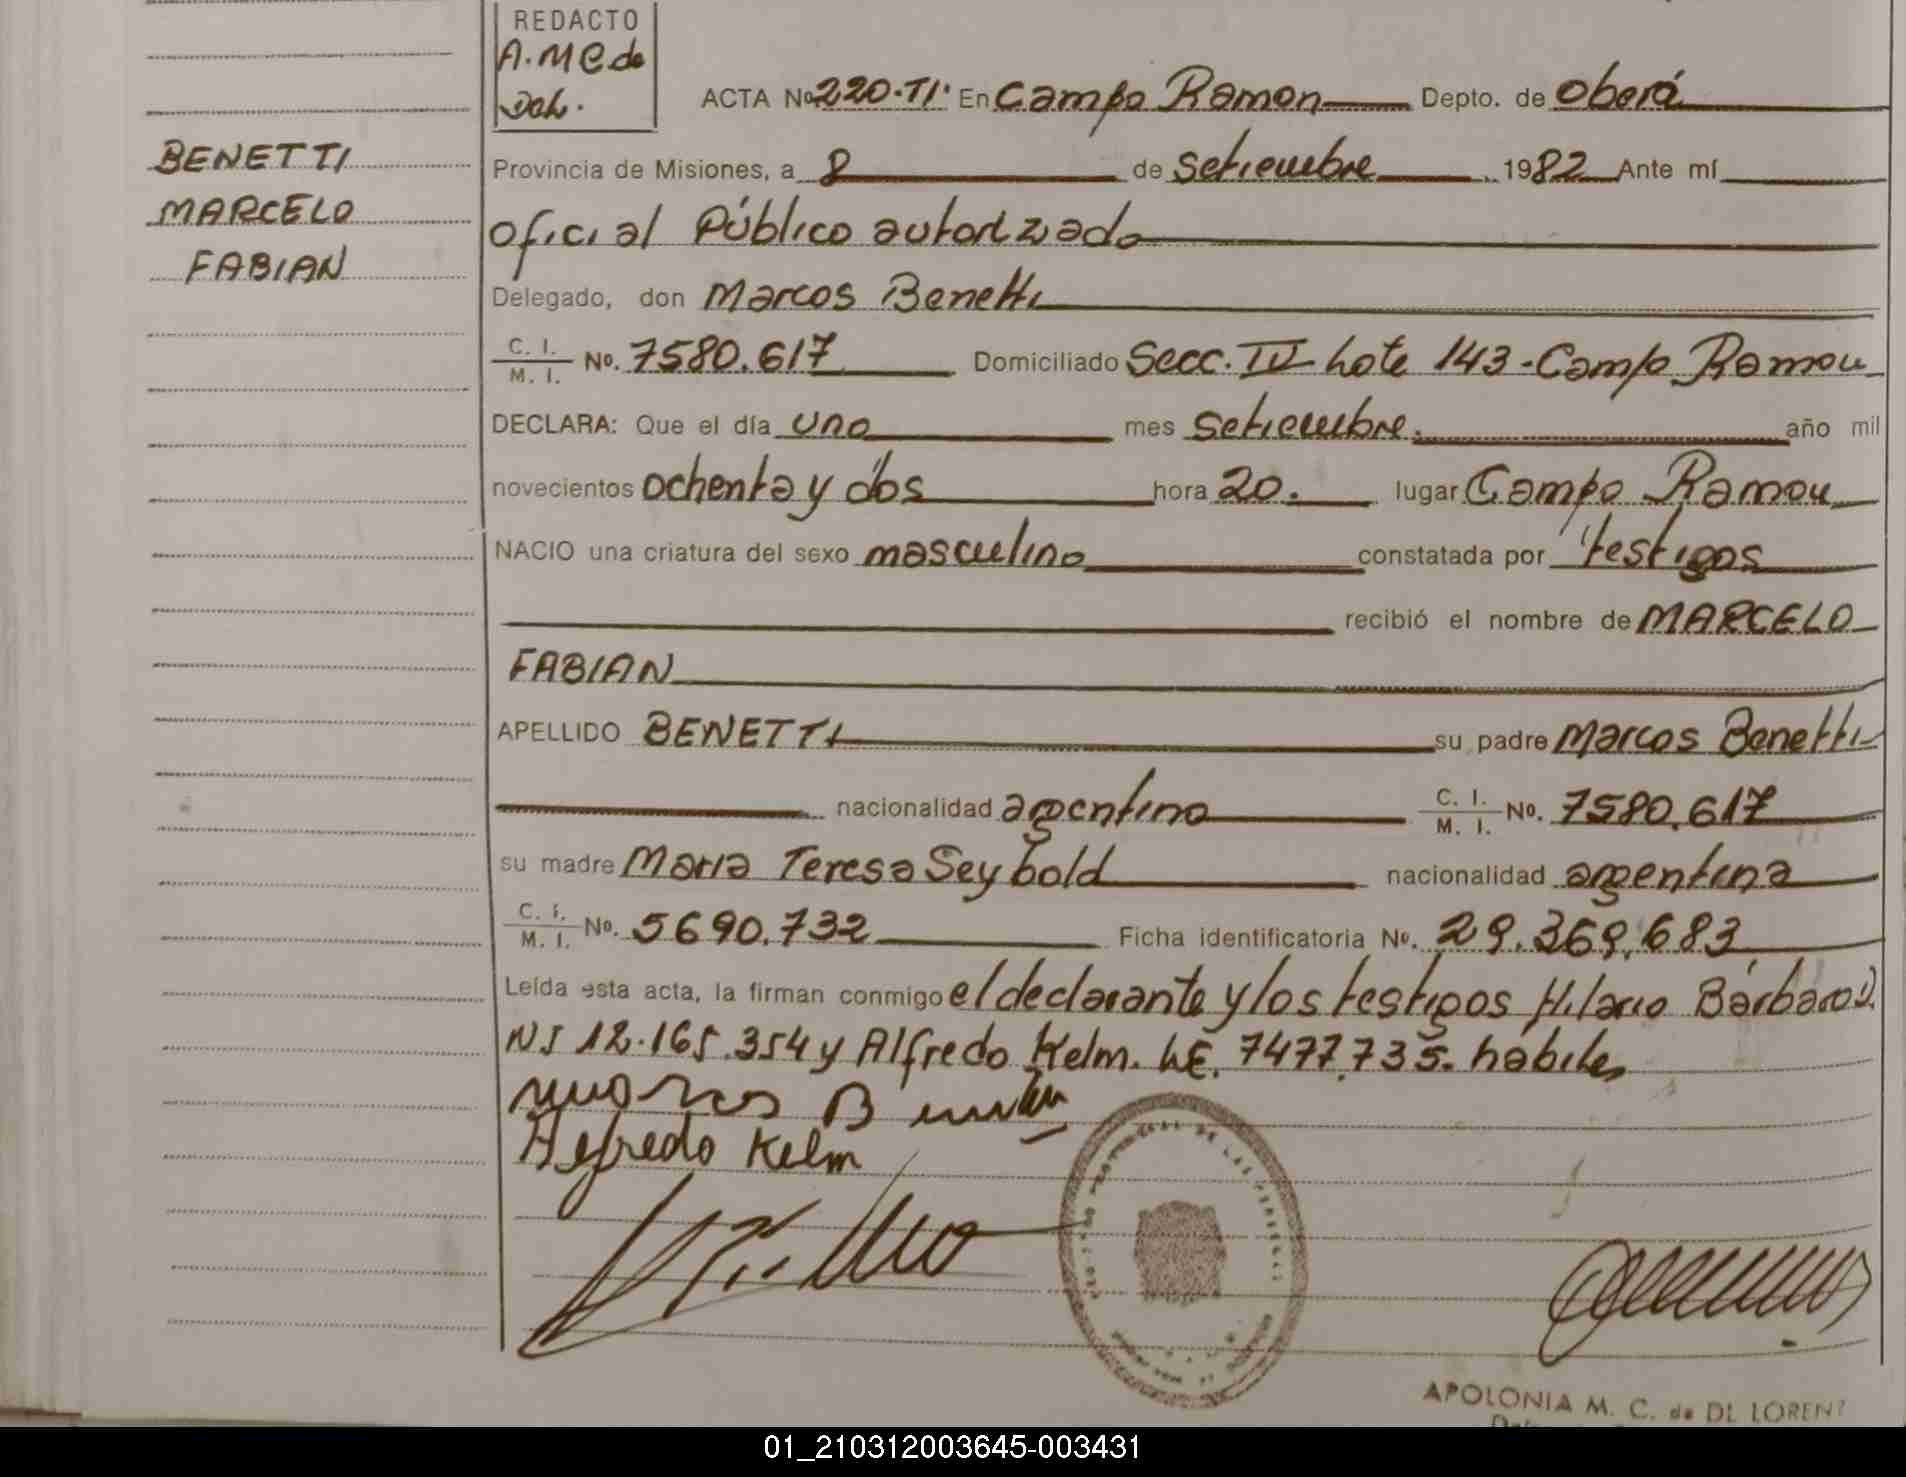 REDACTO
A.M C. de
ACTA Nº 220.TI. En Campo Ramon Depto. de Oberá
BENETTI
MARCELO
FABIAN
Provincia de Misiones, a 8 de Setiembre 1982 Ante mí
Oficial Público autorizado
Delegado, don Marcos Benetti
C. I.
M. I. No. 7580.617 Domiciliado Secc. IV Lote 143 - Campo Ramon
DECLARA: Que el día uno mes setiembre. año mil
novecientos ochenta y dos hora 20. lugar Campo Ramon
NACIO una criatura del sexo masculino constatada por testigos
recibió el nombre de MARCELO
FABIAN
APELLIDO BENETTI su padre Marcos Benetti
nacionalidad argentino C. I. M. I. No. 7580.617
su madre Maria Teresa Seybold nacionalidad argentina
C. I. M. I. No. 5690.732 Ficha identificatoria No. 29.369.683
Leída esta acta, la firman conmigo el declarante y los testigos Hilario Bárbaro D.
NI 12.165.354 y Alfredo Kelm. LE. 7477.735. habiles
Alfredo Kelm
APOLONIA M. C. de DL LOREN
01_210312003645-003431